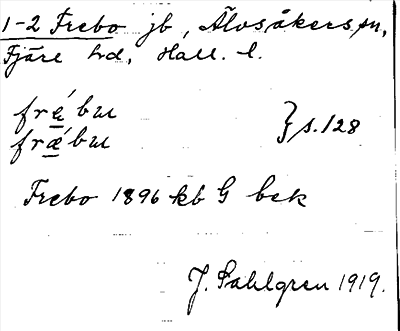 1-2 Frebo jb, Älvsåkers sn,
Fjäre hd, Hall. l.
fre̱´bu
fræ̱´bu } s. 128
Frebo 1896 kb G bek
J. Sahlgren 1919.